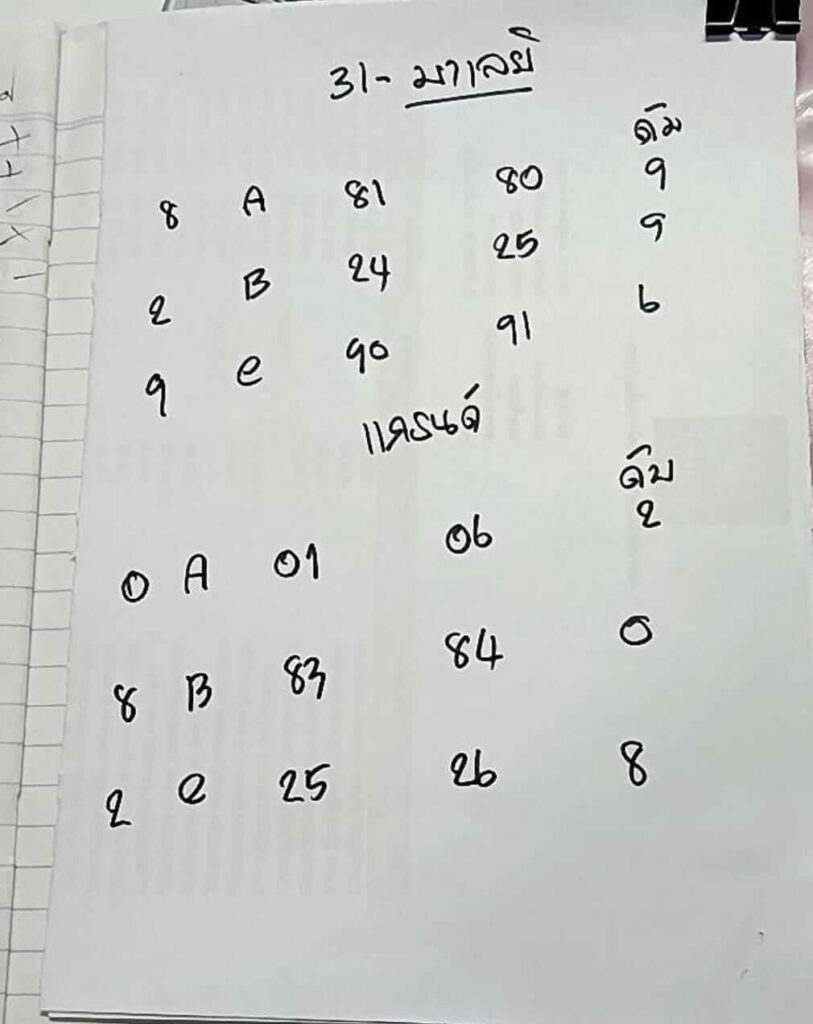 31- มาเลย์
ดับ
8 A 81 80 9
2 B 24 25 9
9 e 90 91 6
แครนด์
ดับ
0 A 01 06 2
8 B 83 84 0
2 e 25 26 8